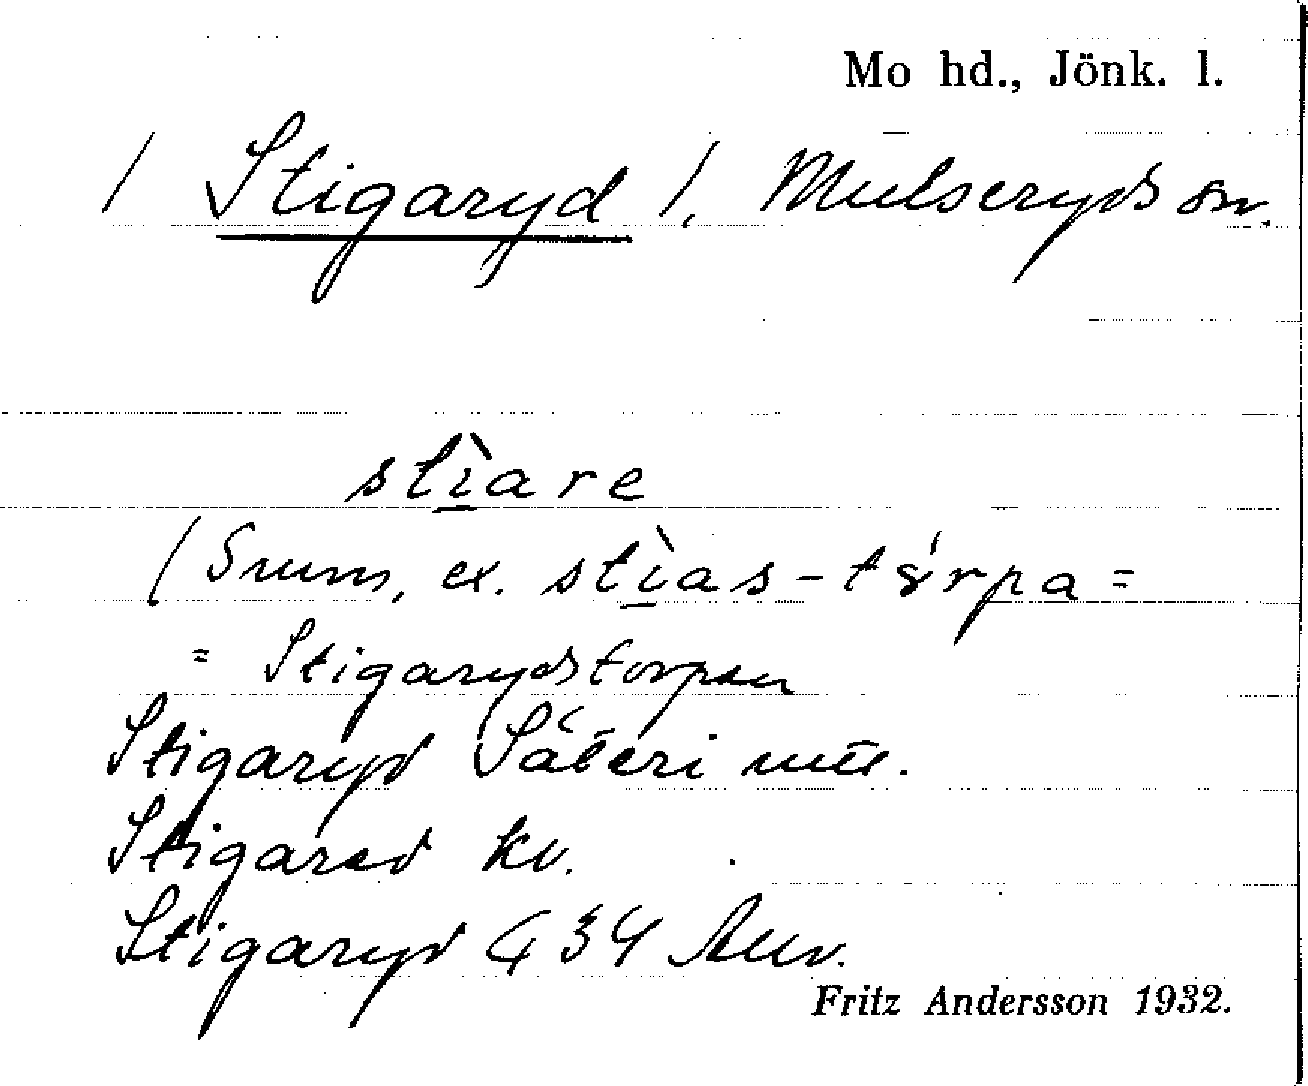 Mo hd., Jönk. l.
/ Stigaryd /, Mulseryds sn.
stìare
(Snum, ex. stìas-tórpa =
= Stigarydstorpen
Stigaryd Säteri mtl.
Stigared kv.
Stigaryd G 34
Fritz Andersson 1932.